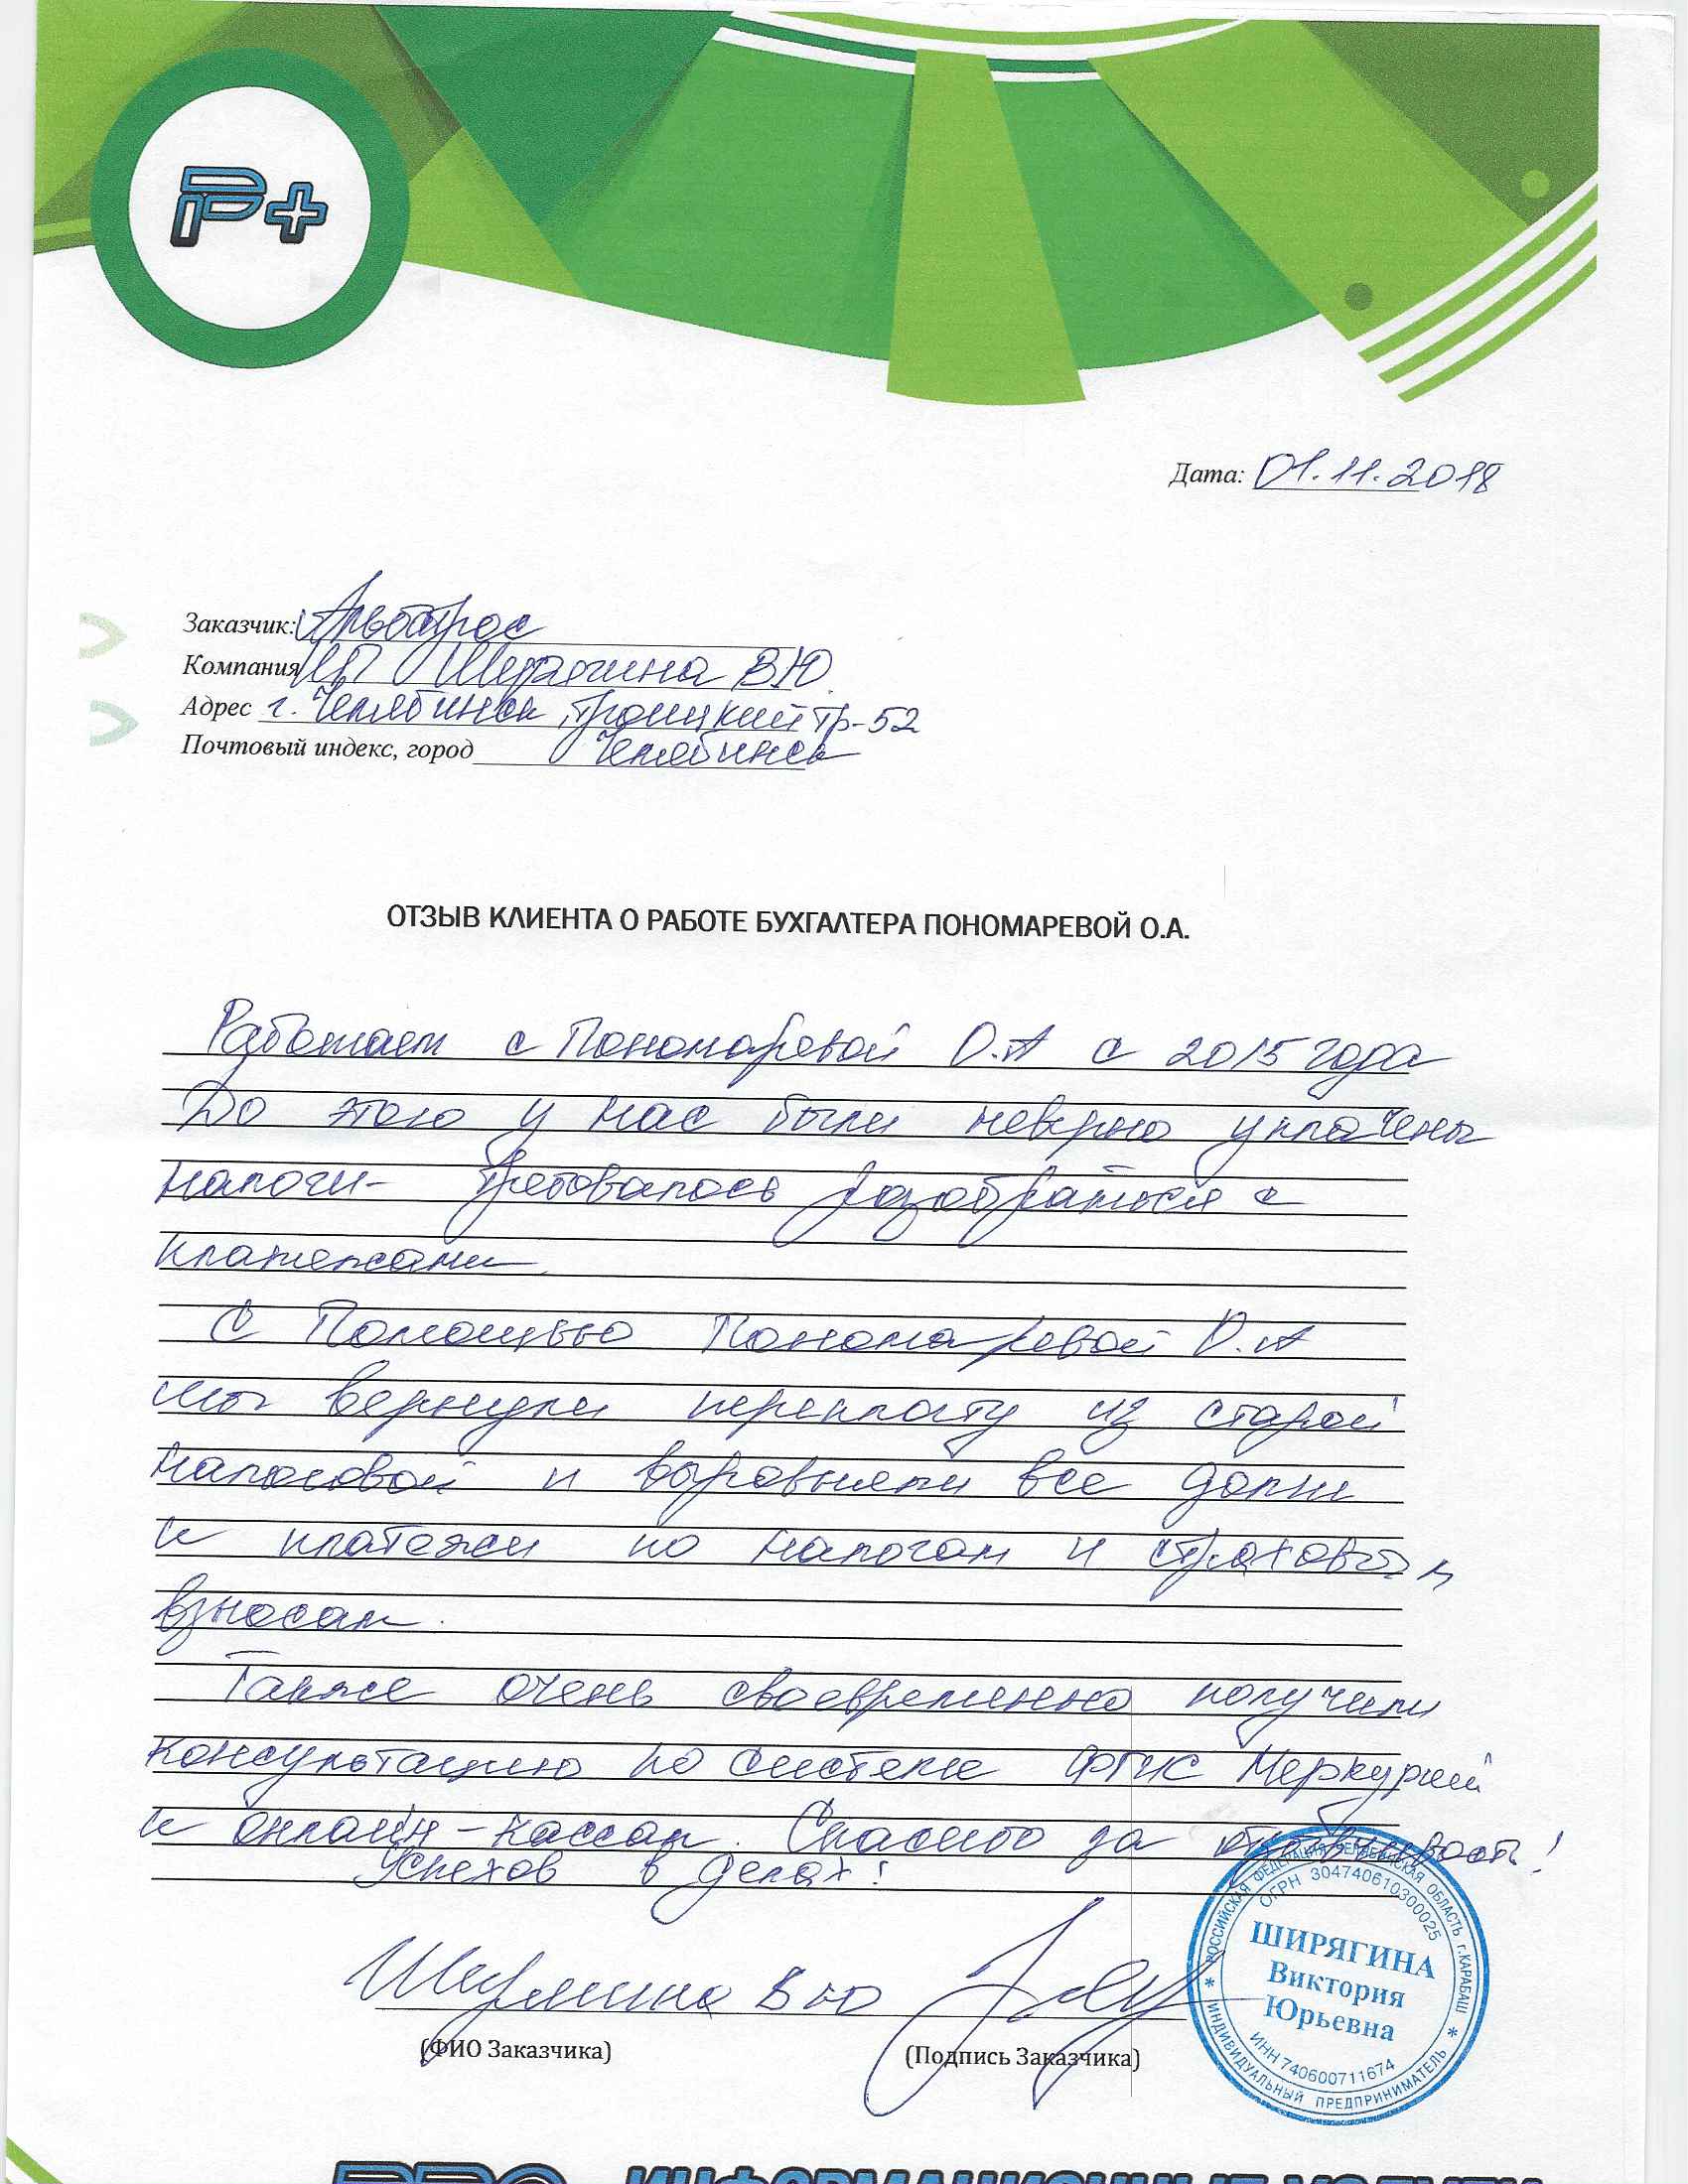 P+
Дата: 01.11.2018
Заказчик: Альбатрос
Компания ИП Ширягина В.Ю.
Адрес г. Челябинск, Троицкий тр-52
Почтовый индекс, город Челябинск
ОТЗЫВ КЛИЕНТА О РАБОТЕ БУХГАЛТЕРА ПОНОМАРЕВОЙ О.А.
Работаем с Пономаревой О.А с 2015 года
До этого у нас были неверно уплачены
налоги- требовалось разобраться с
платежами.
С Помощью Пономаревой О.А
мы вернули переплату из старой
налоговой и выровняли все долги
и платежи по налогам и страховым
взносам.
Также очень своевременно получили
консультацию по системе ФГИС Меркурий
и онлайн-кассам. Спасибо за отзывчивость!
Успехов в делах!
Ширягина В Ю
(ФИО Заказчика) (Подпись Заказчика)
РОССИЙСКАЯ ФЕДЕРАЦИЯ ЧЕЛЯБИНСКАЯ ОБЛАСТЬ г.КАРАБАШ
ОГРН 304740610300025
ШИРЯГИНА
Виктория
Юрьевна
ИНН 740600711674
* ИНДИВИДУАЛЬНЫЙ ПРЕДПРИНИМАТЕЛЬ *
ИНФОРМАЦИОННЫЕ УСЛУГИ